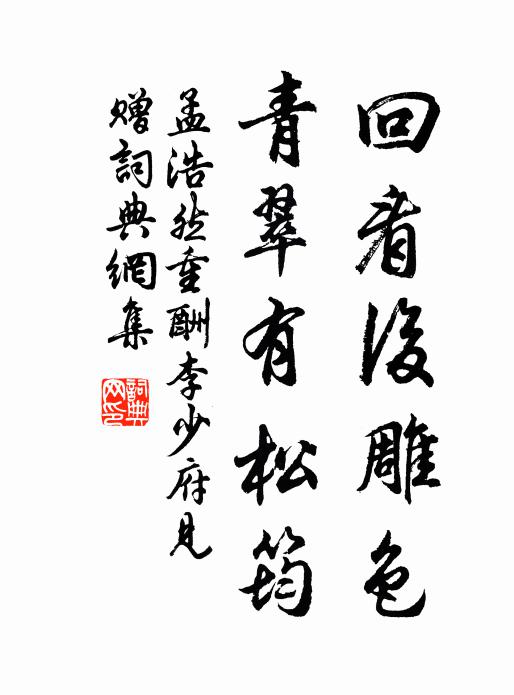 回看後雕色
青翠有松筠
孟浩然重酬李少府見
贈詞典網集
詞典
网印